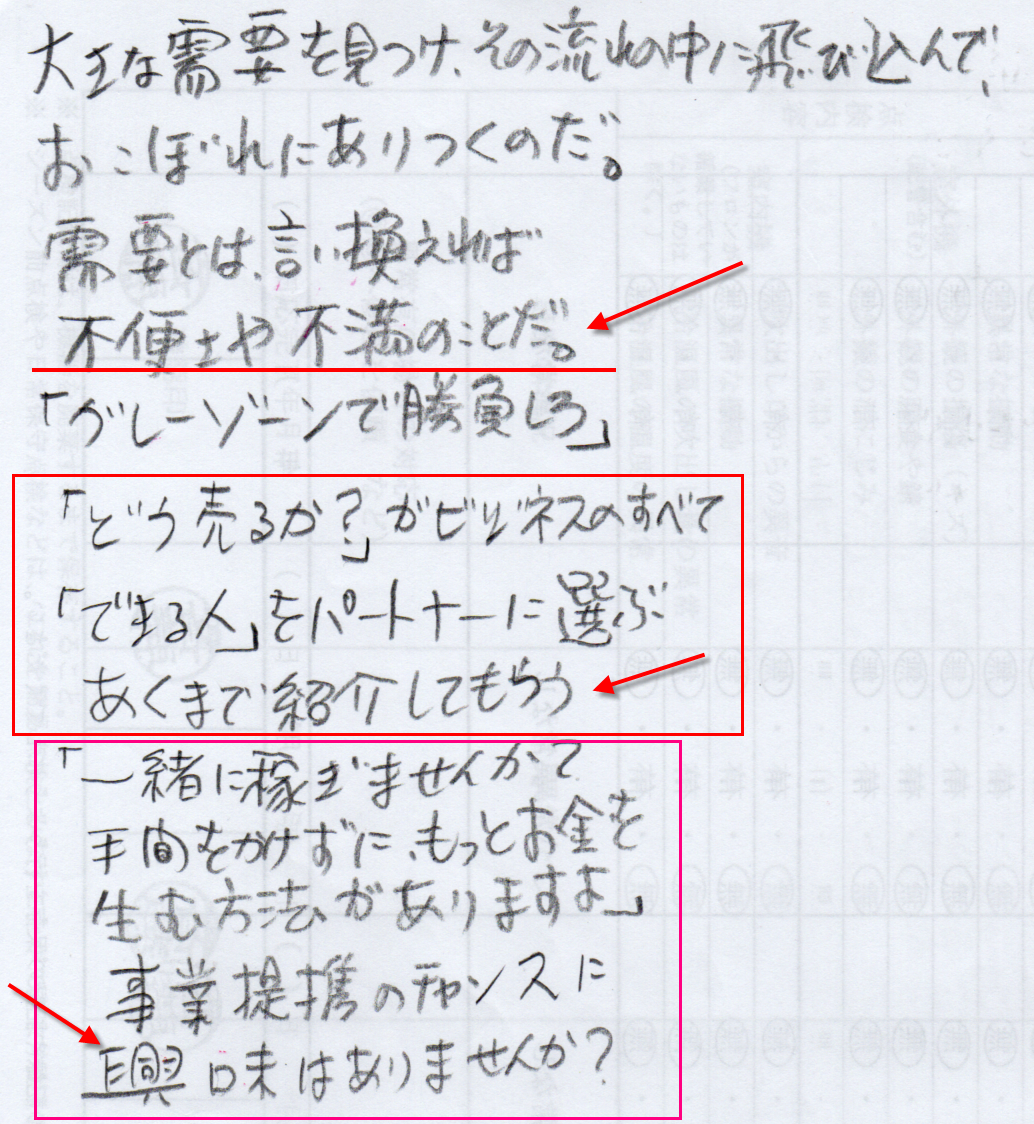 大きな需要を見つけ、その流れの中に飛び込んで、
おこぼれにありつくのだ。
需要とは、言い換えれば
不便さや不満のことだ。
「グレーゾーンで勝負しろ」
「どう売るか?」がビジネスのすべて
「できる人」をパートナーに選ぶ
あくまで紹介してもらう
「一緒に稼ぎませんか?
手間をかけずに、もっとお金を
生む方法がありますよ」
事業提携のチャンスに
興味はありませんか?